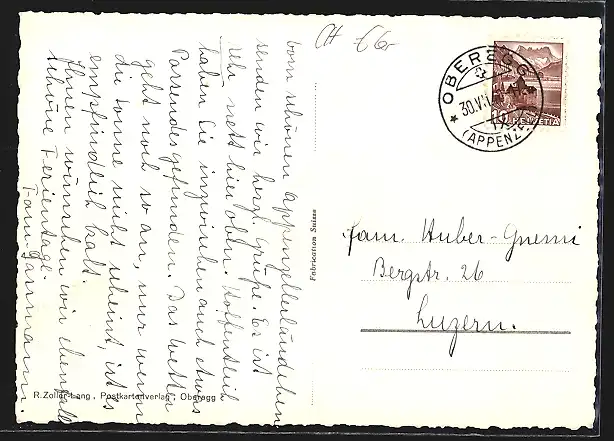 vom schönen Appenzellerländchen
senden wir herzl. Grüße. Es ist
sehr nett hier oben. Hoffentlich
haben Sie inzwischen auch etwas
Passendes gefunden. Das Wetter
geht noch so an, nur wenn
die Sonne nicht scheint, ist es
empfindlich kalt.
Ihnen wünschen wir ebenfalls
schöne Ferientage.
Fam.
CH €6,-
OBEREGG
30.VI
(APPENZ.)
HELVETIA
Fabrication Suisse
Fam. Huber-Gnemi
Bergstr. 26
Luzern.
R. Zoller-Lang, Postkartenverlag, Oberegg